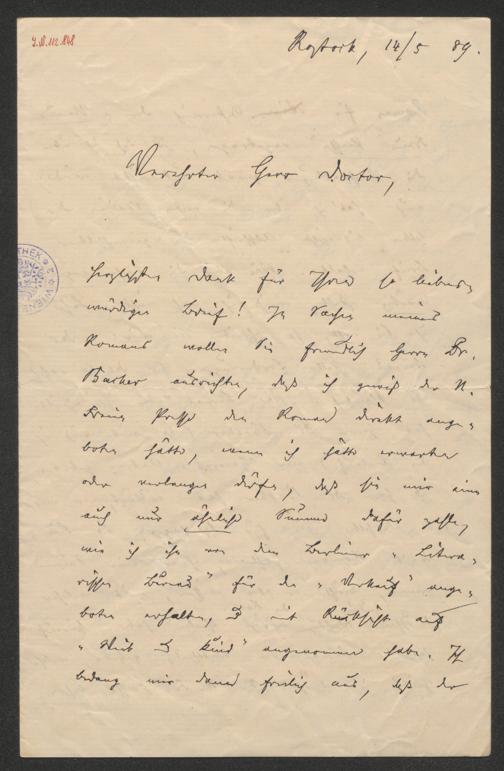 J.N. 112.848
Rostock, 14/5 89.
Verehrter Herr Doctor,
herzlichsten Dank für Ihren so liebens-
würdigen Brief! In Sachen meines
Romans wollen Sie freundlich Herrn Dr.
Bacher ausrichten, daß ich gewiß der N.
Freien Presse den Roman direkt ange-
boten hätte, wenn ich hätte erwarten
oder verlangen dürfen, daß sie mir eine
auch nur ähnliche Summe dafür zahle,
wie ich sie von dem Berliner „Litera-
rischen Bureau" für den „Verkauf" ange-
boten erhalten, u mit Rücksicht auf
„Weib u Kind" angenommen habe. Ich
bedang mir dann freilich aus, daß der